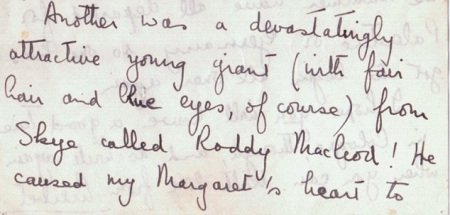 Another was a devastatingly
attractive young giant (with fair
hair and blue eyes, of course) from
Skye called Roddy Macleod! He
caused my Margaret's heart to